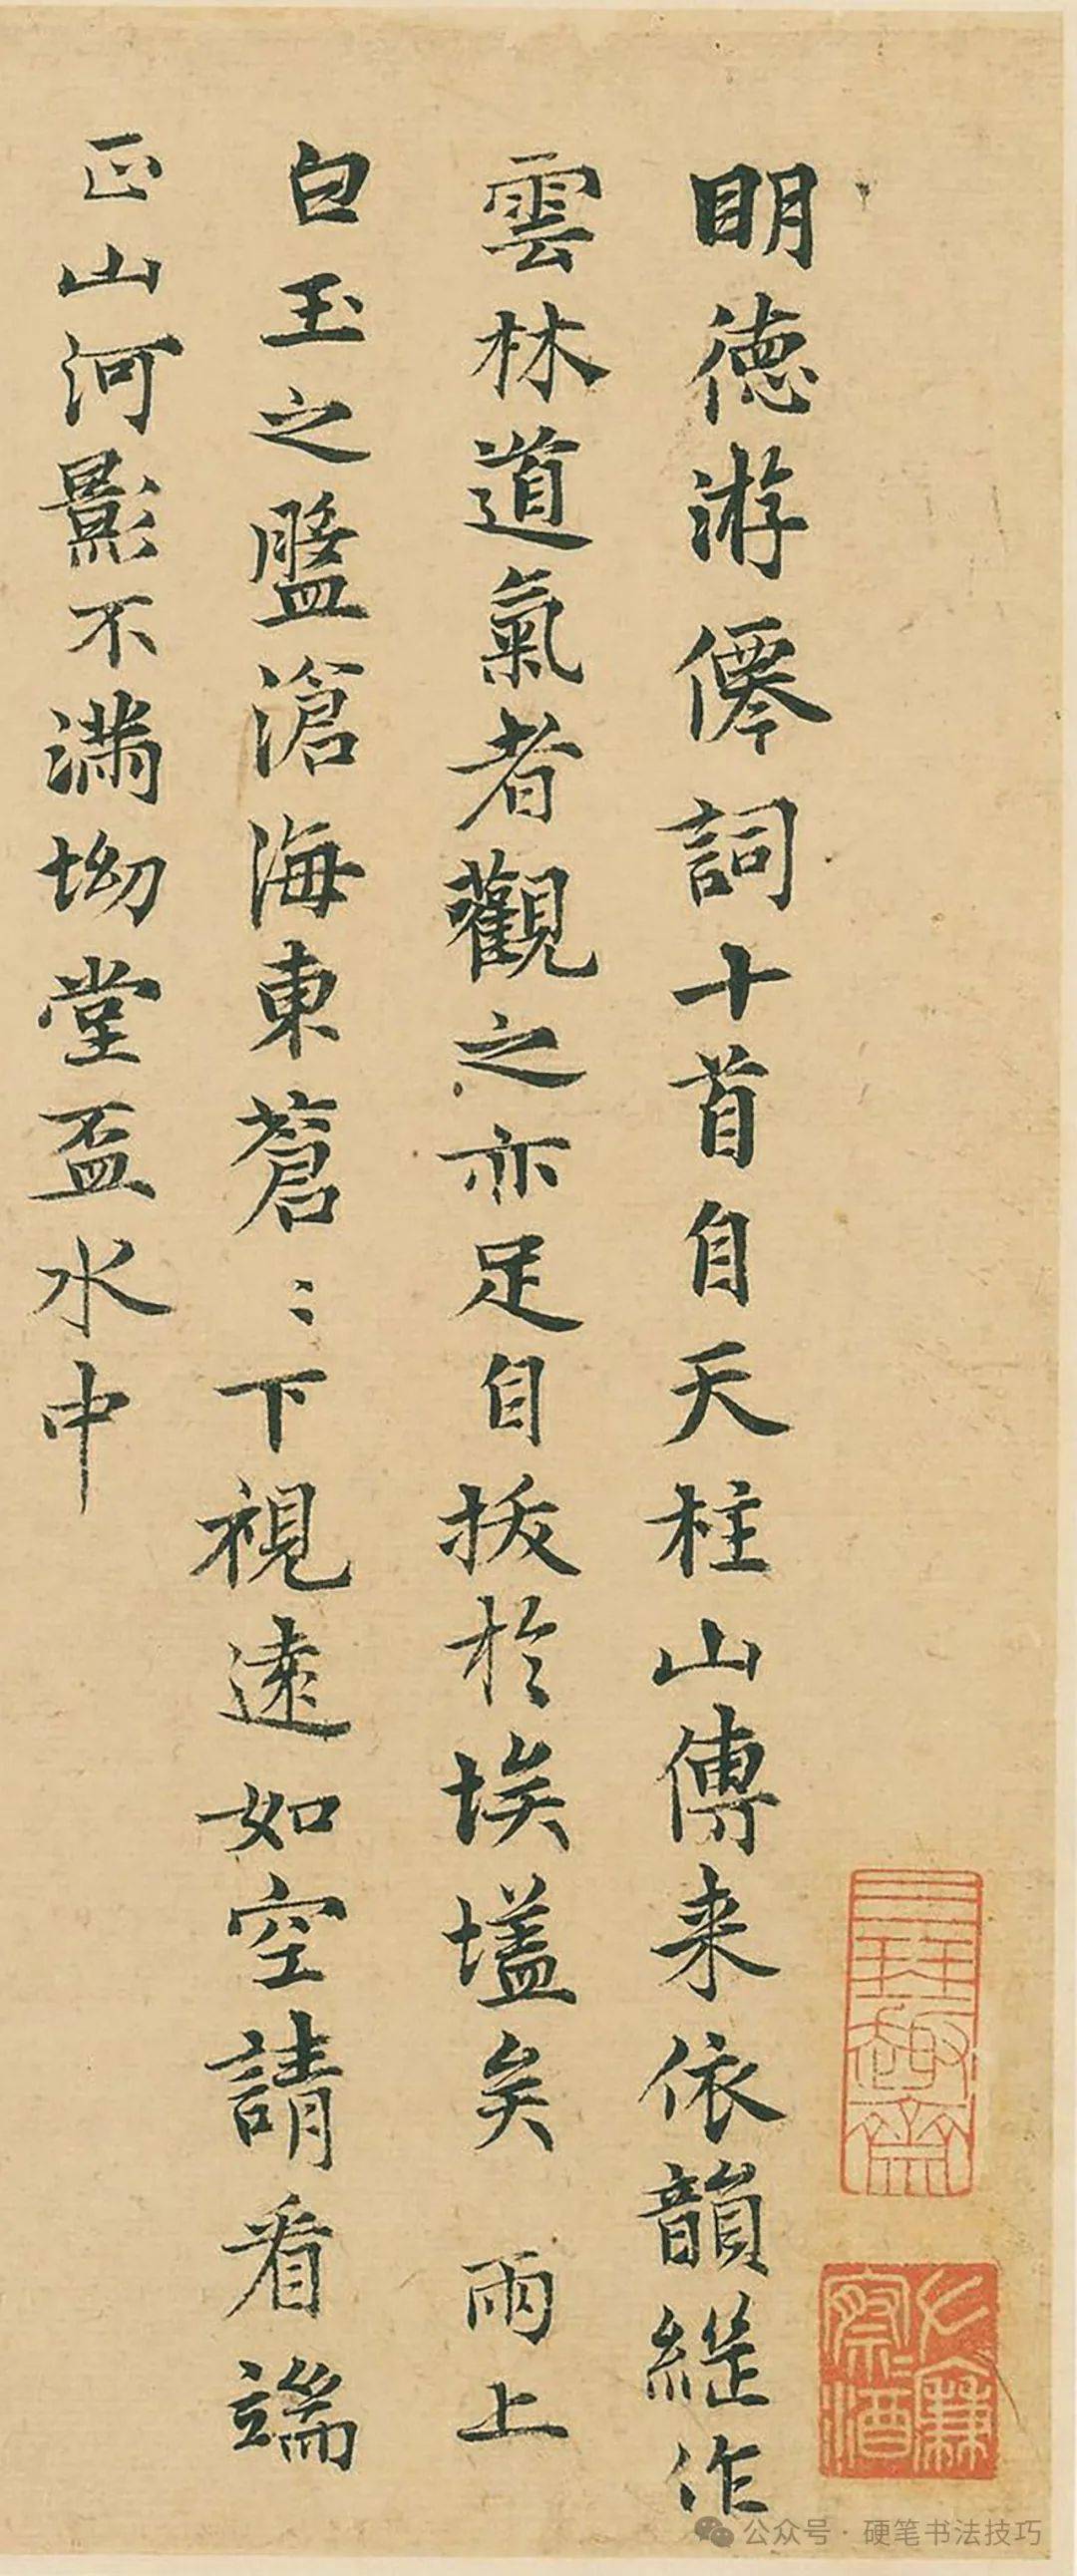 明德游僊詞十首自天柱山傳来依韻継作
雲林道氣者觀之亦足自拔於埃壒矣 兩上
白玉之盤滄海東蒼〻下視遠如空請看端
正山河影不滿坳堂盃水中
公众号·硬笔书法技巧